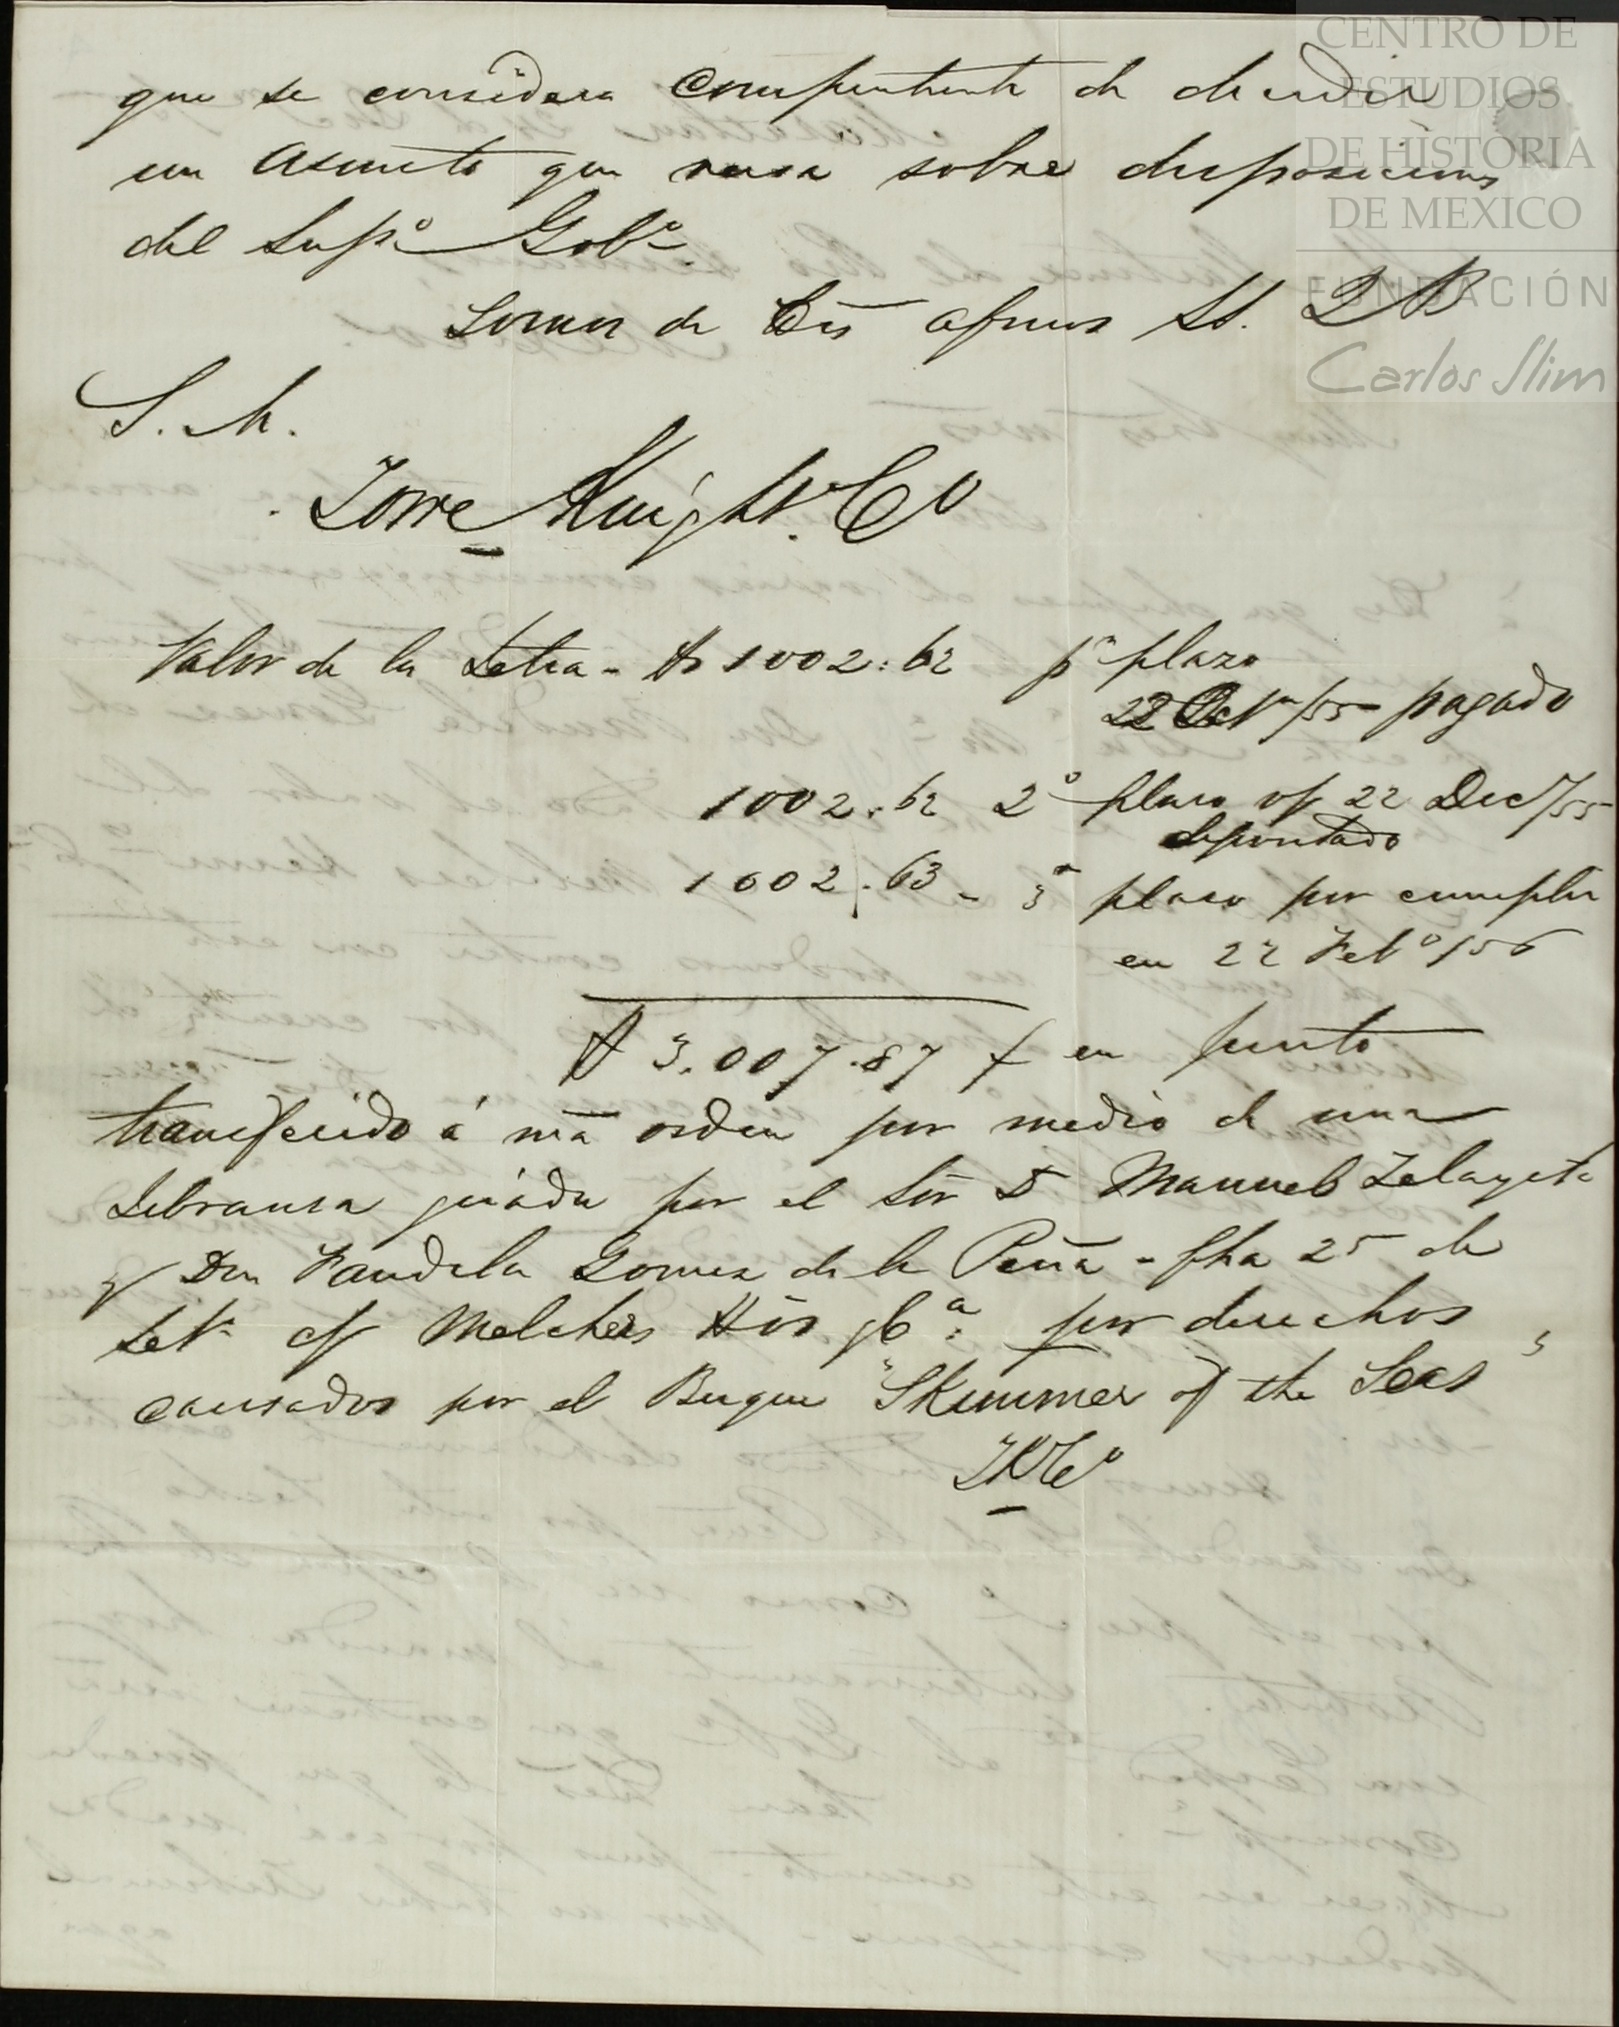 que se considera Competente de decidir
un Asunto que versa sobre disposiciones
del Supº Gobº
Somos de Vds afmos SS. Q B
S. M.
Torre Knight. Cº
Valor de la Letra - $ 1002:62 pr plazo
22 Octe/55 pagado
1002.62 2º plazo vf 22 Dec/55
depositado
1002.63 - 3r plazo por cumplir
en 22 Febº/56
$ 3.007.87 f en junto
transferido á nra orden por medio de una
Libranza girada por el Sor Dn Manuel Zelayeta
y Don Vandela Gomez de la Peña - fha 25 de
Set. cf Melchers Hos yCa: por derechos
causados por el Buque "Skimmer of the Seas"
TKCº
CENTRO DE
ESTUDIOS
DE HISTORIA
DE MEXICO
FUNDACIÓN
Carlos Slim